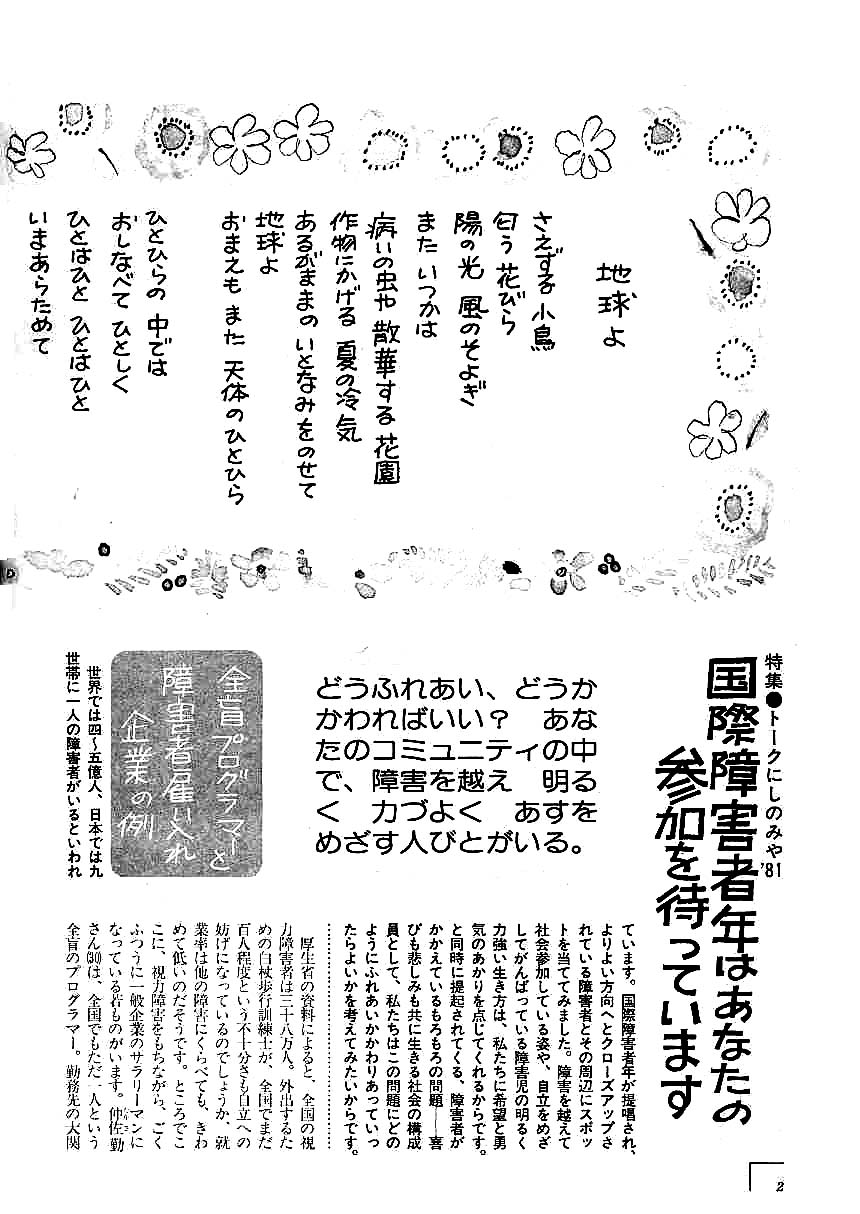 地球よ
さえずる 小鳥
匂う 花びら
陽の光 風のそよぎ
また いつかは
病いの虫や 散華する 花園
作物にかげる 夏の冷気
あるがままの いとなみをのせて
地球よ
おまえも また 天体の ひとひら
ひとひらの 中では
おしなべて ひとしく
ひとはひと ひとはひと
いまあらためて
特集●トークにしのみや'81
国際障害者年はあなたの
参加を待っています
どうふれあい、どうか
かわればいい? あな
たのコミュニティの中
で、障害を越え 明る
く 力づよく あすを
めざす人びとがいる。
全盲プログラマーと
障害者雇い入れ
企業の例
世界では四〜五億人、日本では九
世帯に一人の障害者がいるといわれ
ています。国際障害者年が提唱され、
よりよい方向へとクローズアップさ
れている障害者とその周辺にスポッ
トを当ててみました。障害を越えて
社会参加している姿や、自立をめざ
してがんばっている障害児の明るく
力強い生き方は、私たちに希望と勇
気のあかりを点じてくれるからです。
と同時に提起されてくる、障害者が
かかえているもろもろの問題――喜
びも悲しみも共に生きる社会の構成
員として、私たちはこの問題にどの
ようにふれあいかかわりあっていっ
たらよいかを考えてみたいからです。
厚生省の資料によると、全国の視
力障害者は三十八万人。外出するた
めの白杖歩行訓練士が、全国でまだ
百人程度という不十分さも自立への
妨げになっているのでしょうか、就
業率は他の障害にくらべても、きわ
めて低いのだそうです。ところでこ
こに、視力障害をもちながら、ごく
ふつうに一般企業のサラリーマンに
なっている若ものがいます。仲佐勤
さん(30)は、全国でもただ一人という
全盲のプログラマー。勤務先の大関
2